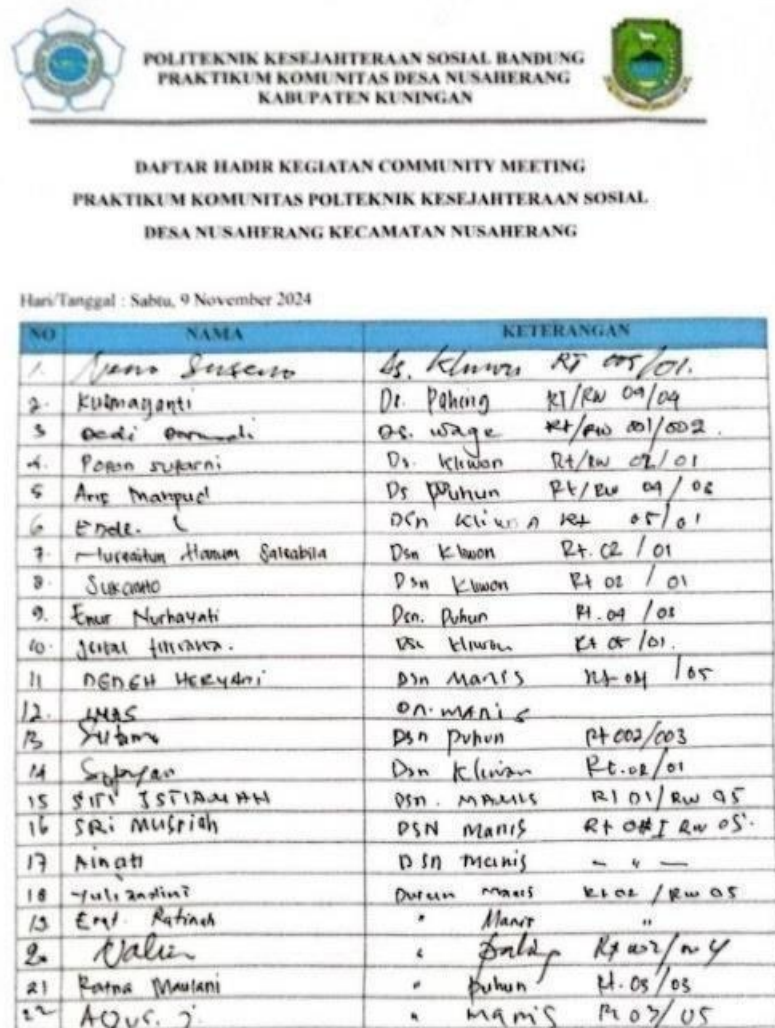 POLITEKNIK KESEJAHTERAAN SOSIAL BANDUNG
PRAKTIKUM KOMUNITAS DESA NUSAHERANG
KABUPATEN KUNINGAN
DAFTAR HADIR KEGIATAN COMMUNITY MEETING
PRAKTIKUM KOMUNITAS POLTEKNIK KESEJAHTERAAN SOSIAL
DESA NUSAHERANG KECAMATAN NUSAHERANG
Hari/Tanggal : Sabtu, 9 November 2024
NO NAMA KETERANGAN
1. Suseno Ds. Kliwon RT 005/01.
2. Kusmayanti Ds. Pahing RT/RW 04/04
3 Dedi Ds. Wage Rt/RW 001/002.
4. Popon Ds. Kliwon Rt/Rw 02/01
5 Arip Mahpud Ds Puhun Rt/Rw 04/03
6 Dsn Kliwon Rt 05/01
7. Hanum Salsabila Dsn Kliwon Rt. 02/01
8. Dsn Kliwon Rt 02 / 01
9. Enur Nurhayati Dsn. Puhun Rt. 04 / 03
10. Dsn Kliwon Rt 05/01.
11 DEDEH HERYANI Dsn Manis Rt 04 / 05
12. IMAS Dn. Manis
13 Sutama Dsn Puhun Rt 002/003
14 Dsn Kliwon Rt. 02/01
15 SITI ISTIAMAH Dsn. MANIS Rt 01/Rw 05
16 SRI DSN Manis Rt Rw 05.
17 Ainati Dsn Manis - " -
18 Yuli andini Dusun Manis Rt 02 / Rw 05
19 Ratinah " Manis "
20 "
21 Ratna Maulani " Puhun Rt. 03/03
22 Agus. J. " Manis Rt 03/05